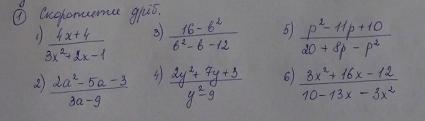 ① Скоротити дріб.
1) (4x+4)/(3x²+2x-1) 3) (16-b²)/(b²-b-12) 5) (p²-11p+10)/(20+8p-p²)
2) (2a²-5a-3)/(3a-9) 4) (2y²+7y+3)/(y²-9) 6) (3x²+16x-12)/(10-13x-3x²)